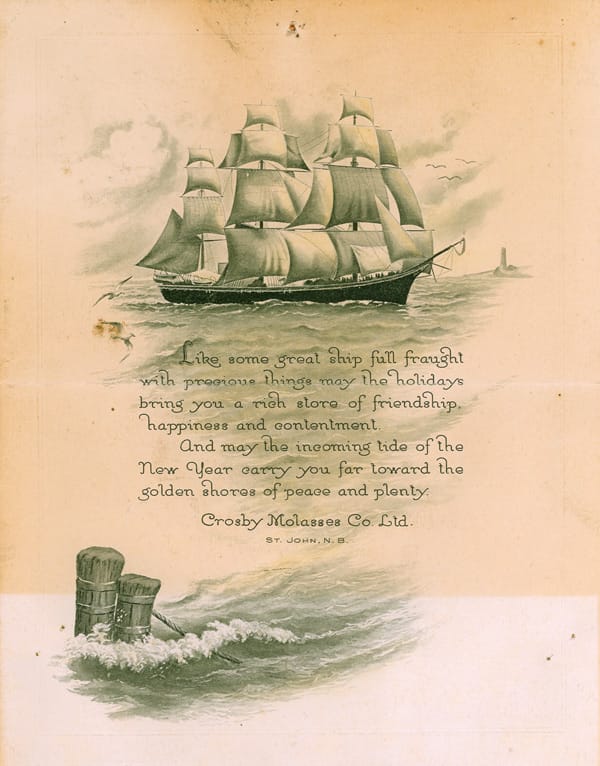 Like some great ship full fraught
with precious things may the holidays
bring you a rich store of friendship,
happiness and contentment.
And may the incoming tide of the
New Year carry you far toward the
golden shores of peace and plenty.
Crosby Molasses Co. Ltd.
ST. JOHN, N. B.